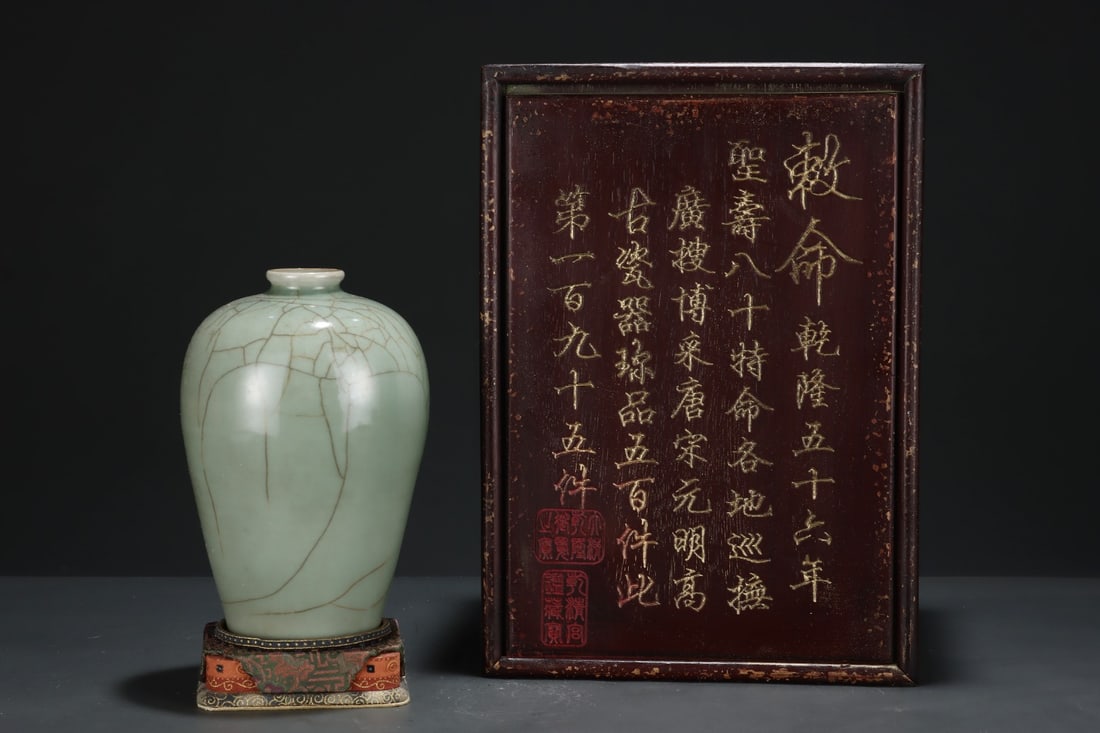 敕命乾隆五十六年
聖壽八十特命各地巡撫
廣搜博采唐宋元明高
古瓷器珎品五百件此
第一百九十五件